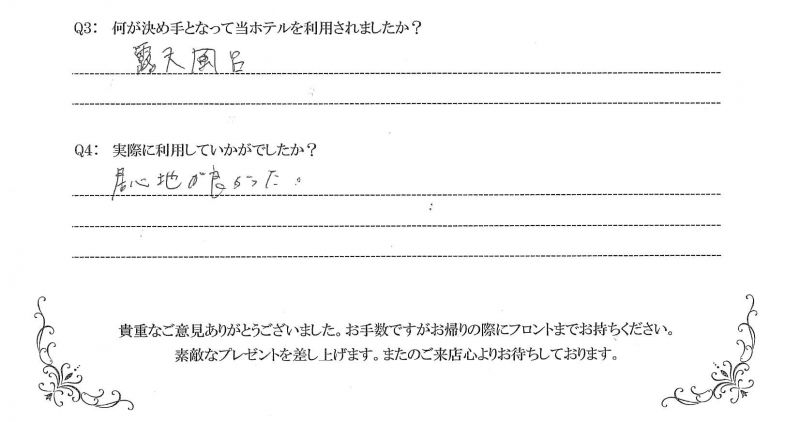 Q3： 何が決め手となって当ホテルを利用されましたか？
露天風呂
Q4： 実際に利用していかがでしたか？
居心地が良かった。
貴重なご意見ありがとうございました。お手数ですがお帰りの際にフロントまでお持ちください。
素敵なプレゼントを差し上げます。またのご来店心よりお待ちしております。